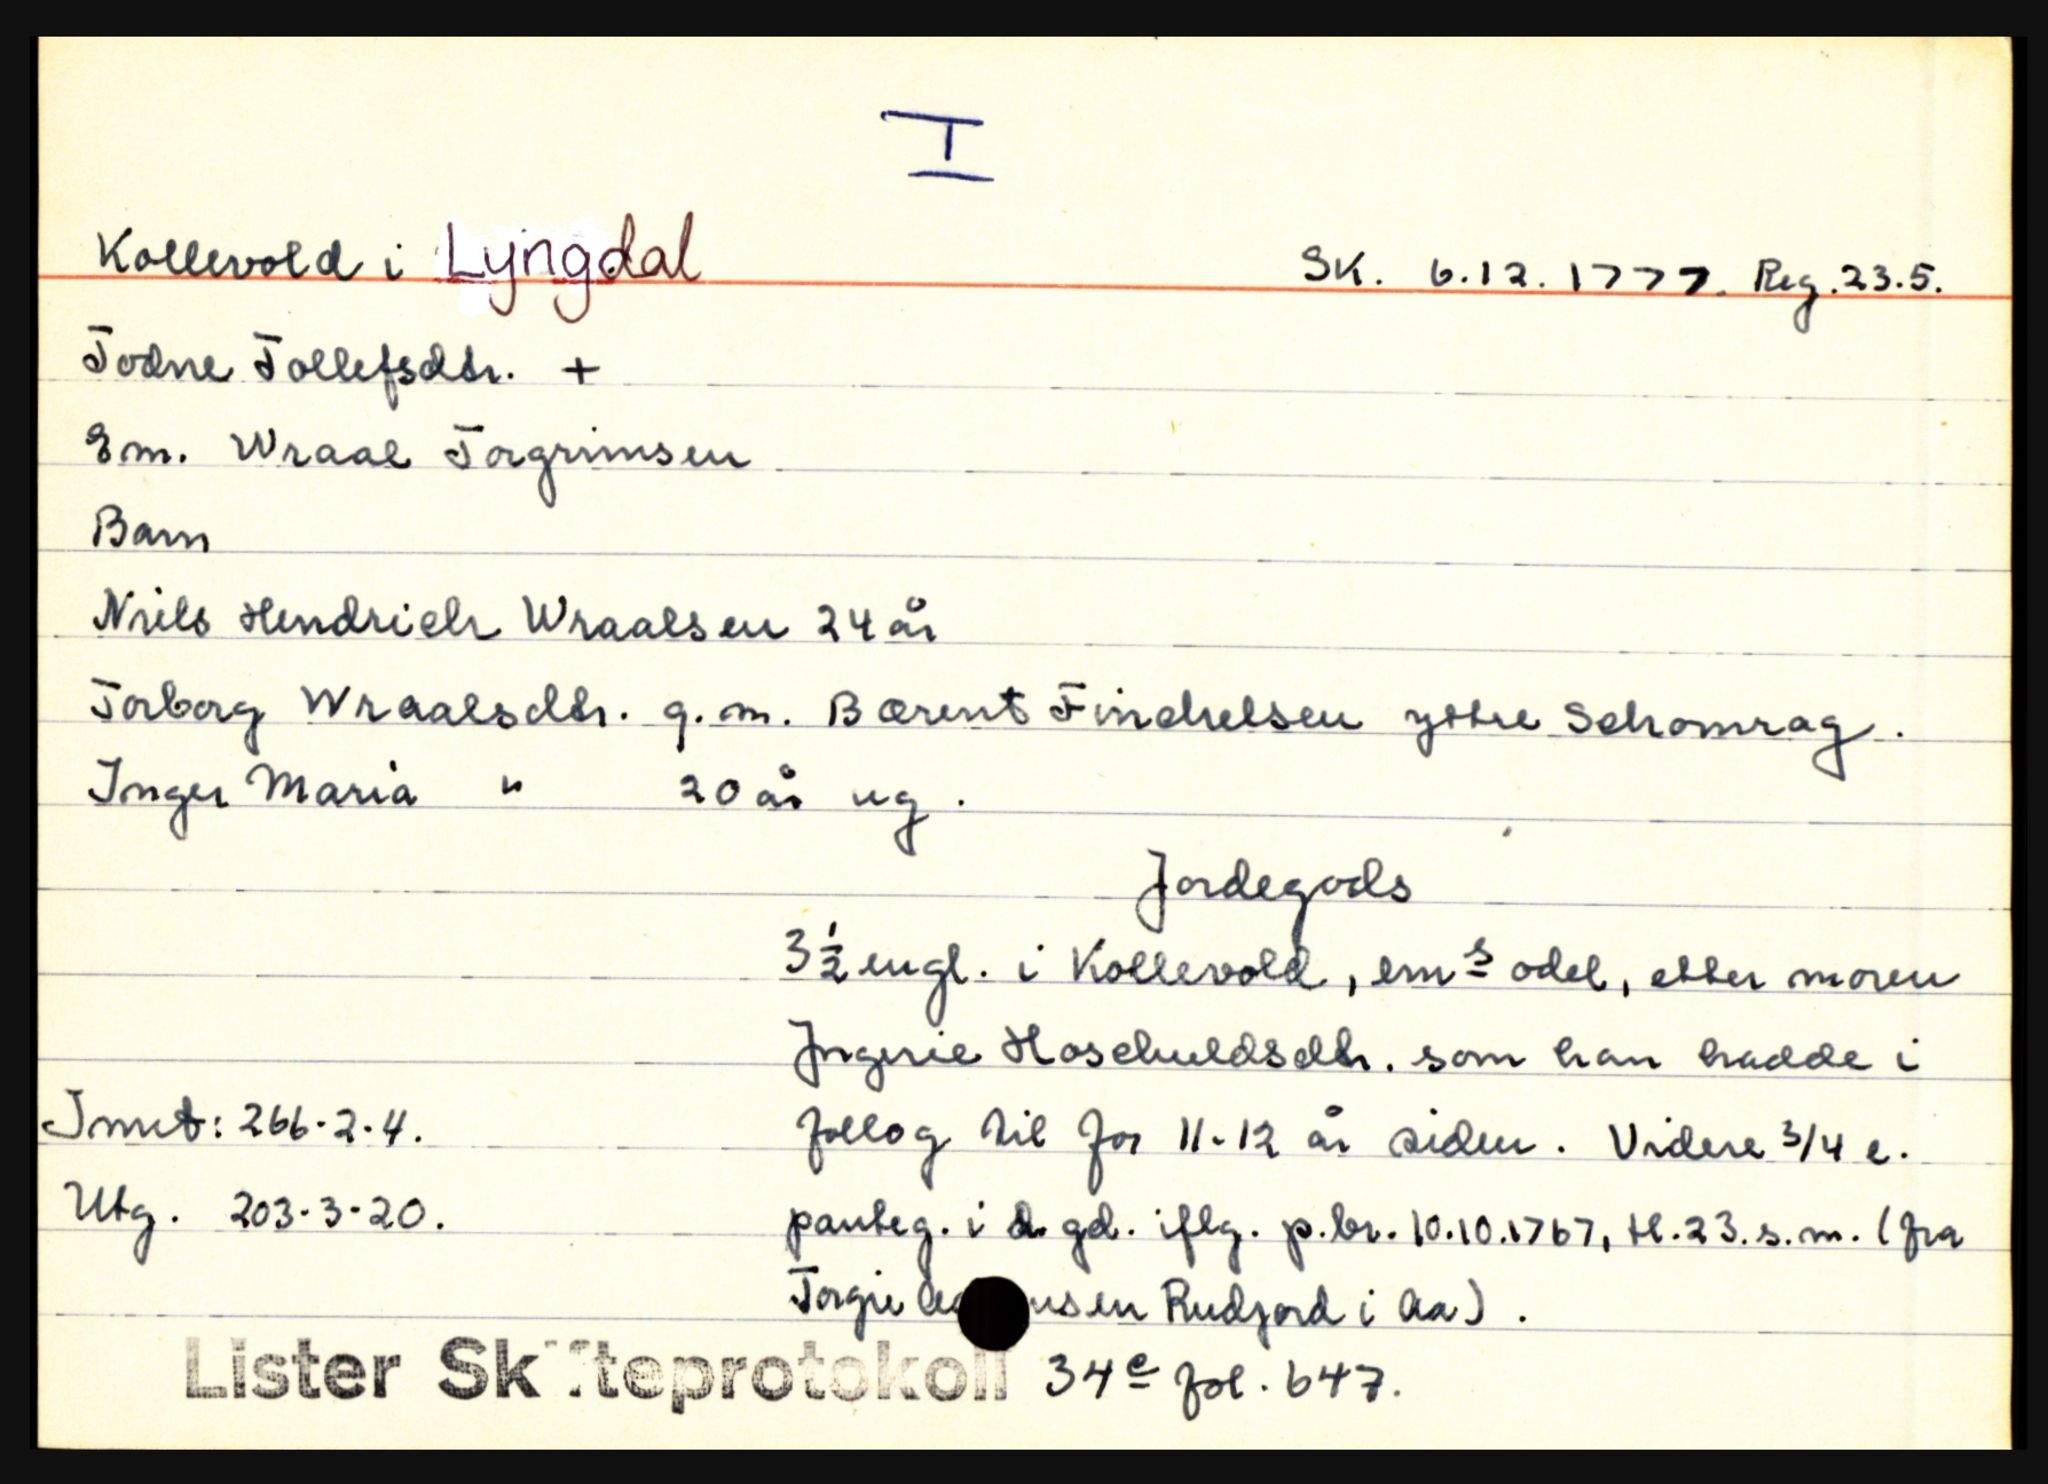 I
Kollevold i Lyngdal SK. 6.12.1777. Reg. 23.5.
Todne Tollefsdtr. +
Em. Wraal Torgrimsen
Barn
Niels Hendrich Wraalsen 24 år
Torborg Wraalsdtr. g.m. Bærent Finchelsen yttre Schomrag.
Inger Maria " 20 år ug.
Jordegods
3 1/2 engl. i Kollevold, ems odel, etter moren
Ingerie Hoschuldsdtr. som han hadde i
follog til for 11-12 år siden. Videre 3/4 e.
Innt: 266-2-4.
panteg. i d. gd. iflg. p.br. 10.10.1767, tl. 23. s.m. (fra
Utg. 203-3-20.
Torgie Rudjord i Aa).
Lister Skifteprotokoll 34e fol. 647.